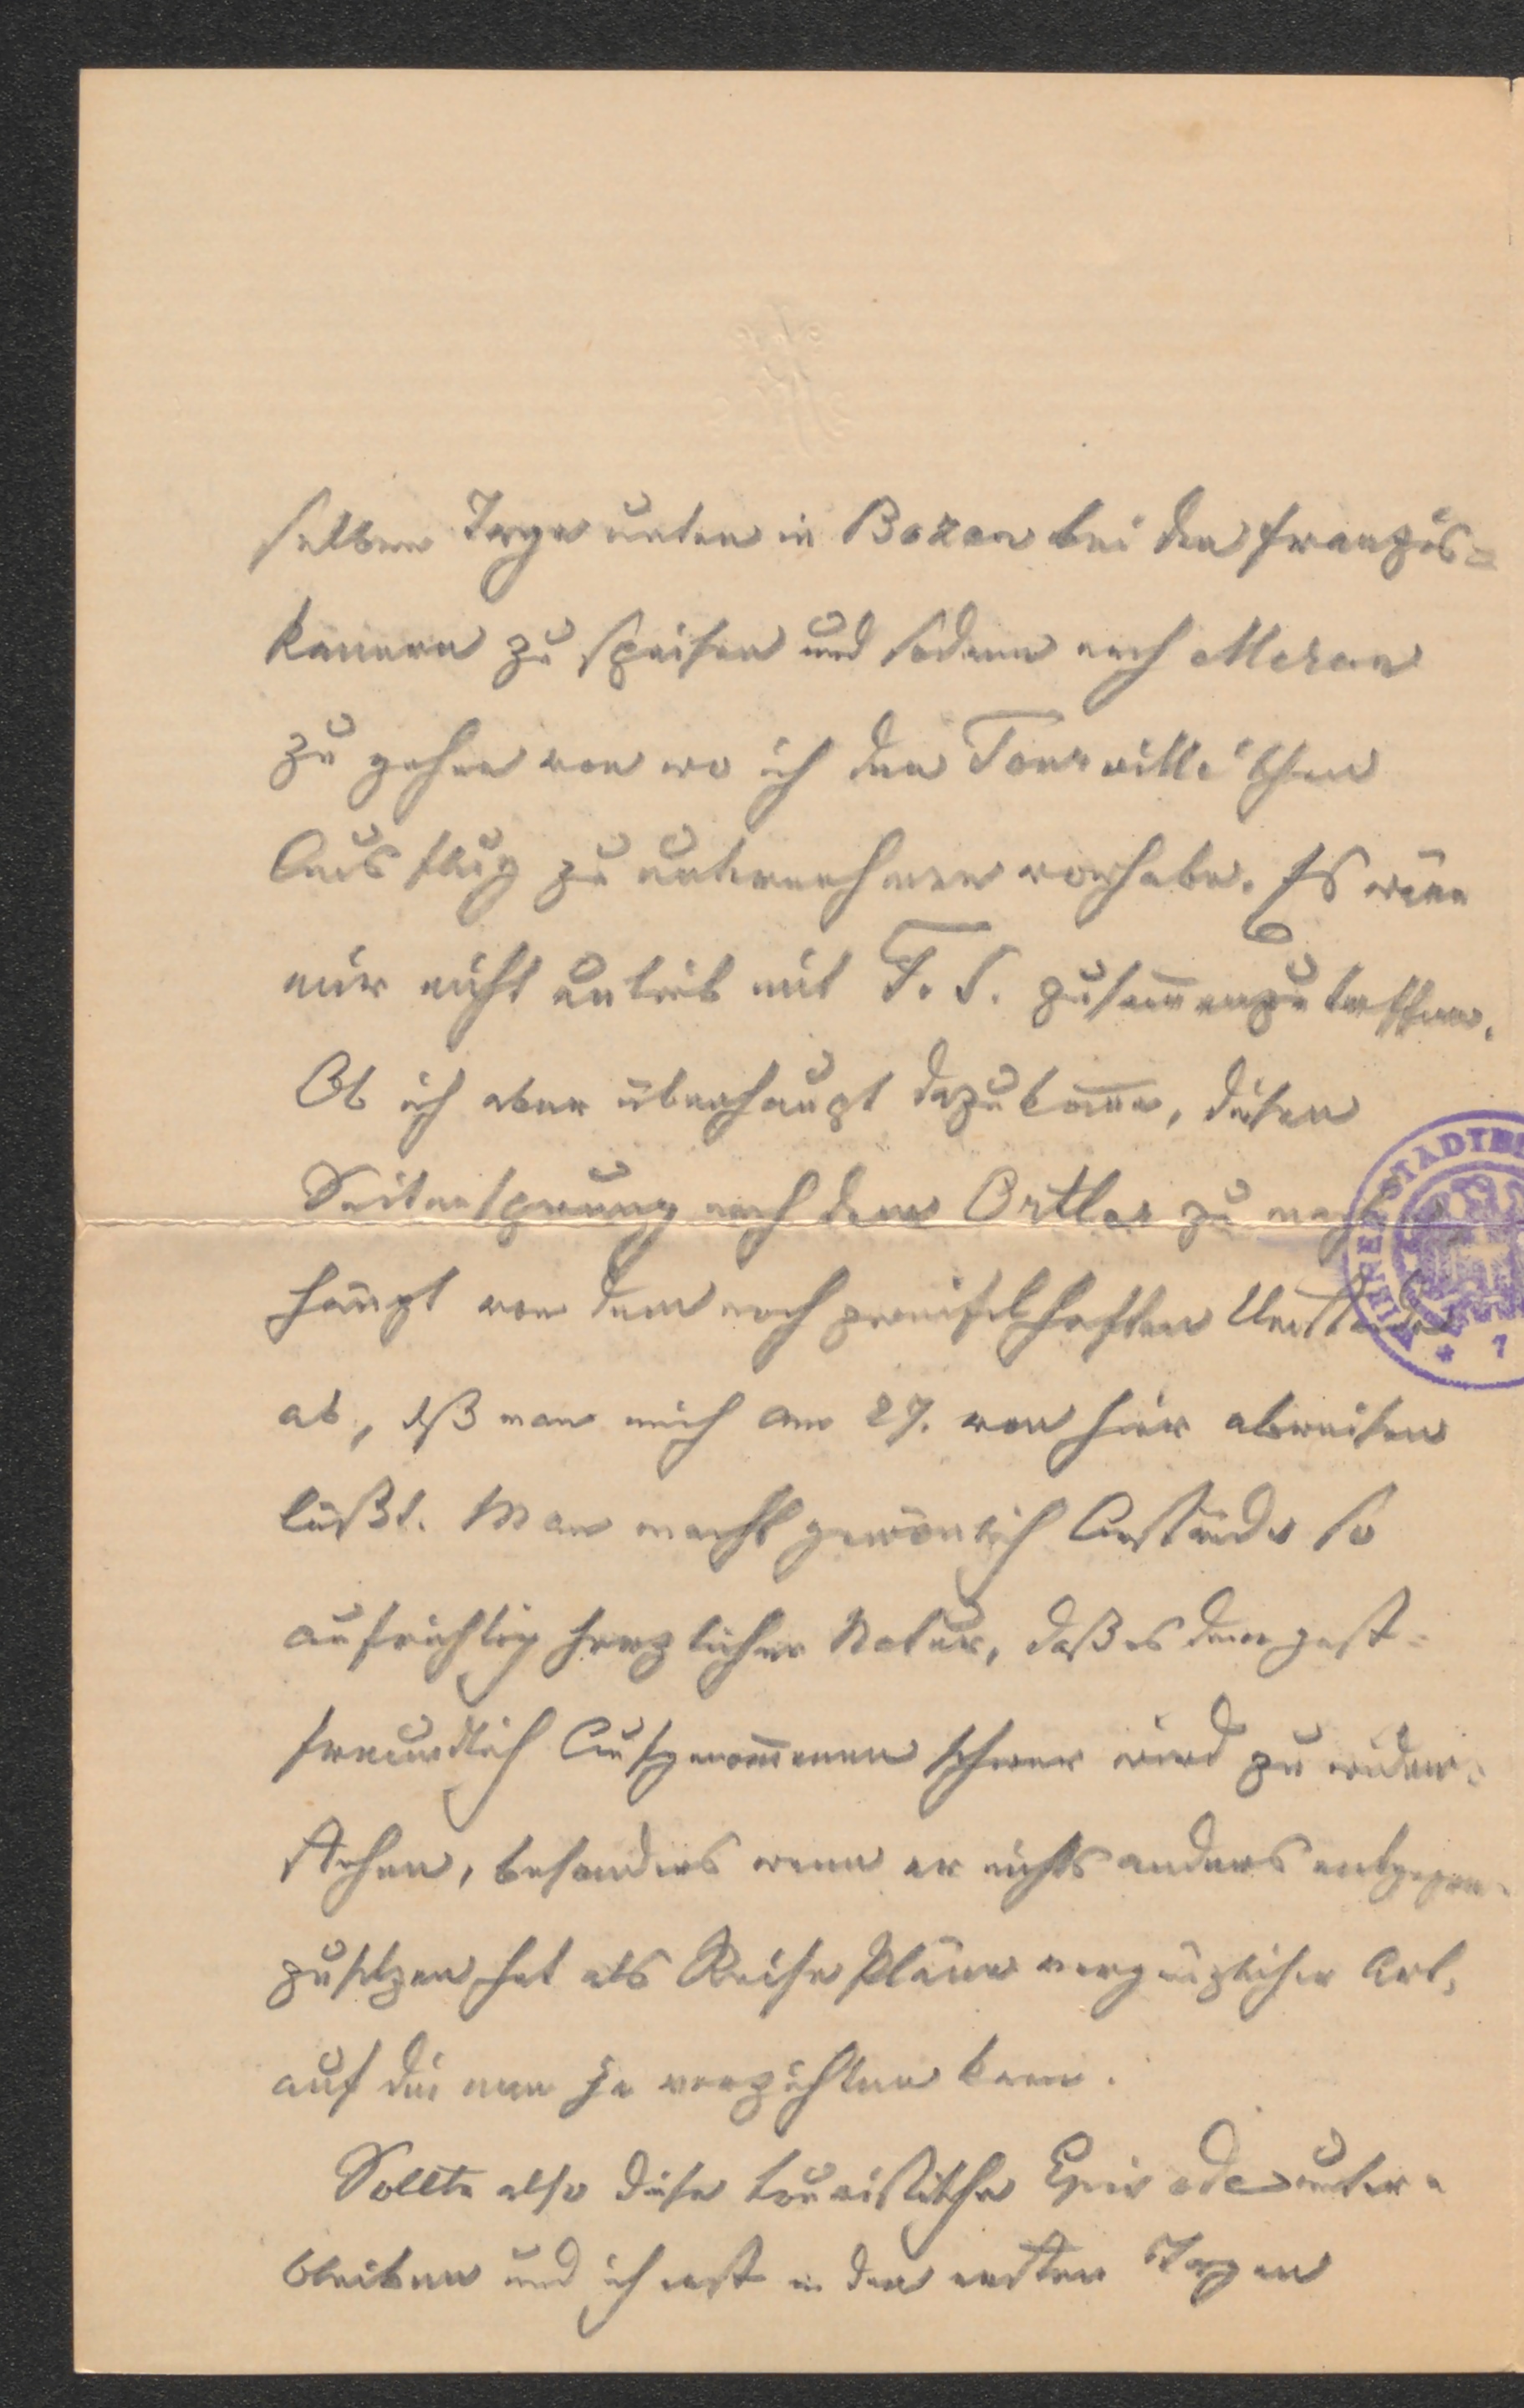 selben Tage unten in Bozen bei den Französ=
kanern zu speisen und sodann nach Meran
zu gehen von wo ich den Tourville'schen
Ausflug zu unternehmen vorhabe. Es wäre
mir nicht unlieb mit F. S. zusam̅enzutreffen.
Ob ich aber überhaupt dazukom̅e, diesen
Seitensprung nach dem Ortler zu machen
hängt von dem noch zweifelhaften Umstande
ab, dß man mich am 27. von hier abreisen
läßt. Man macht gewönlich Anstände so
aufrichtig herzlicher Natur, daß es dem gast=
freundlich Aufgenom̅enen schwer wird zu wider=
stehen, besonders wenn er nichts anders entgegen=
zusetzen hat als Reise Pläne vergnüglicher Art,
auf die man ja verzichten kann.
Sollte also diese touristische Episode unter=
bleiben und ich erst in den ersten Tagen
WIENER STADTBI
* 1